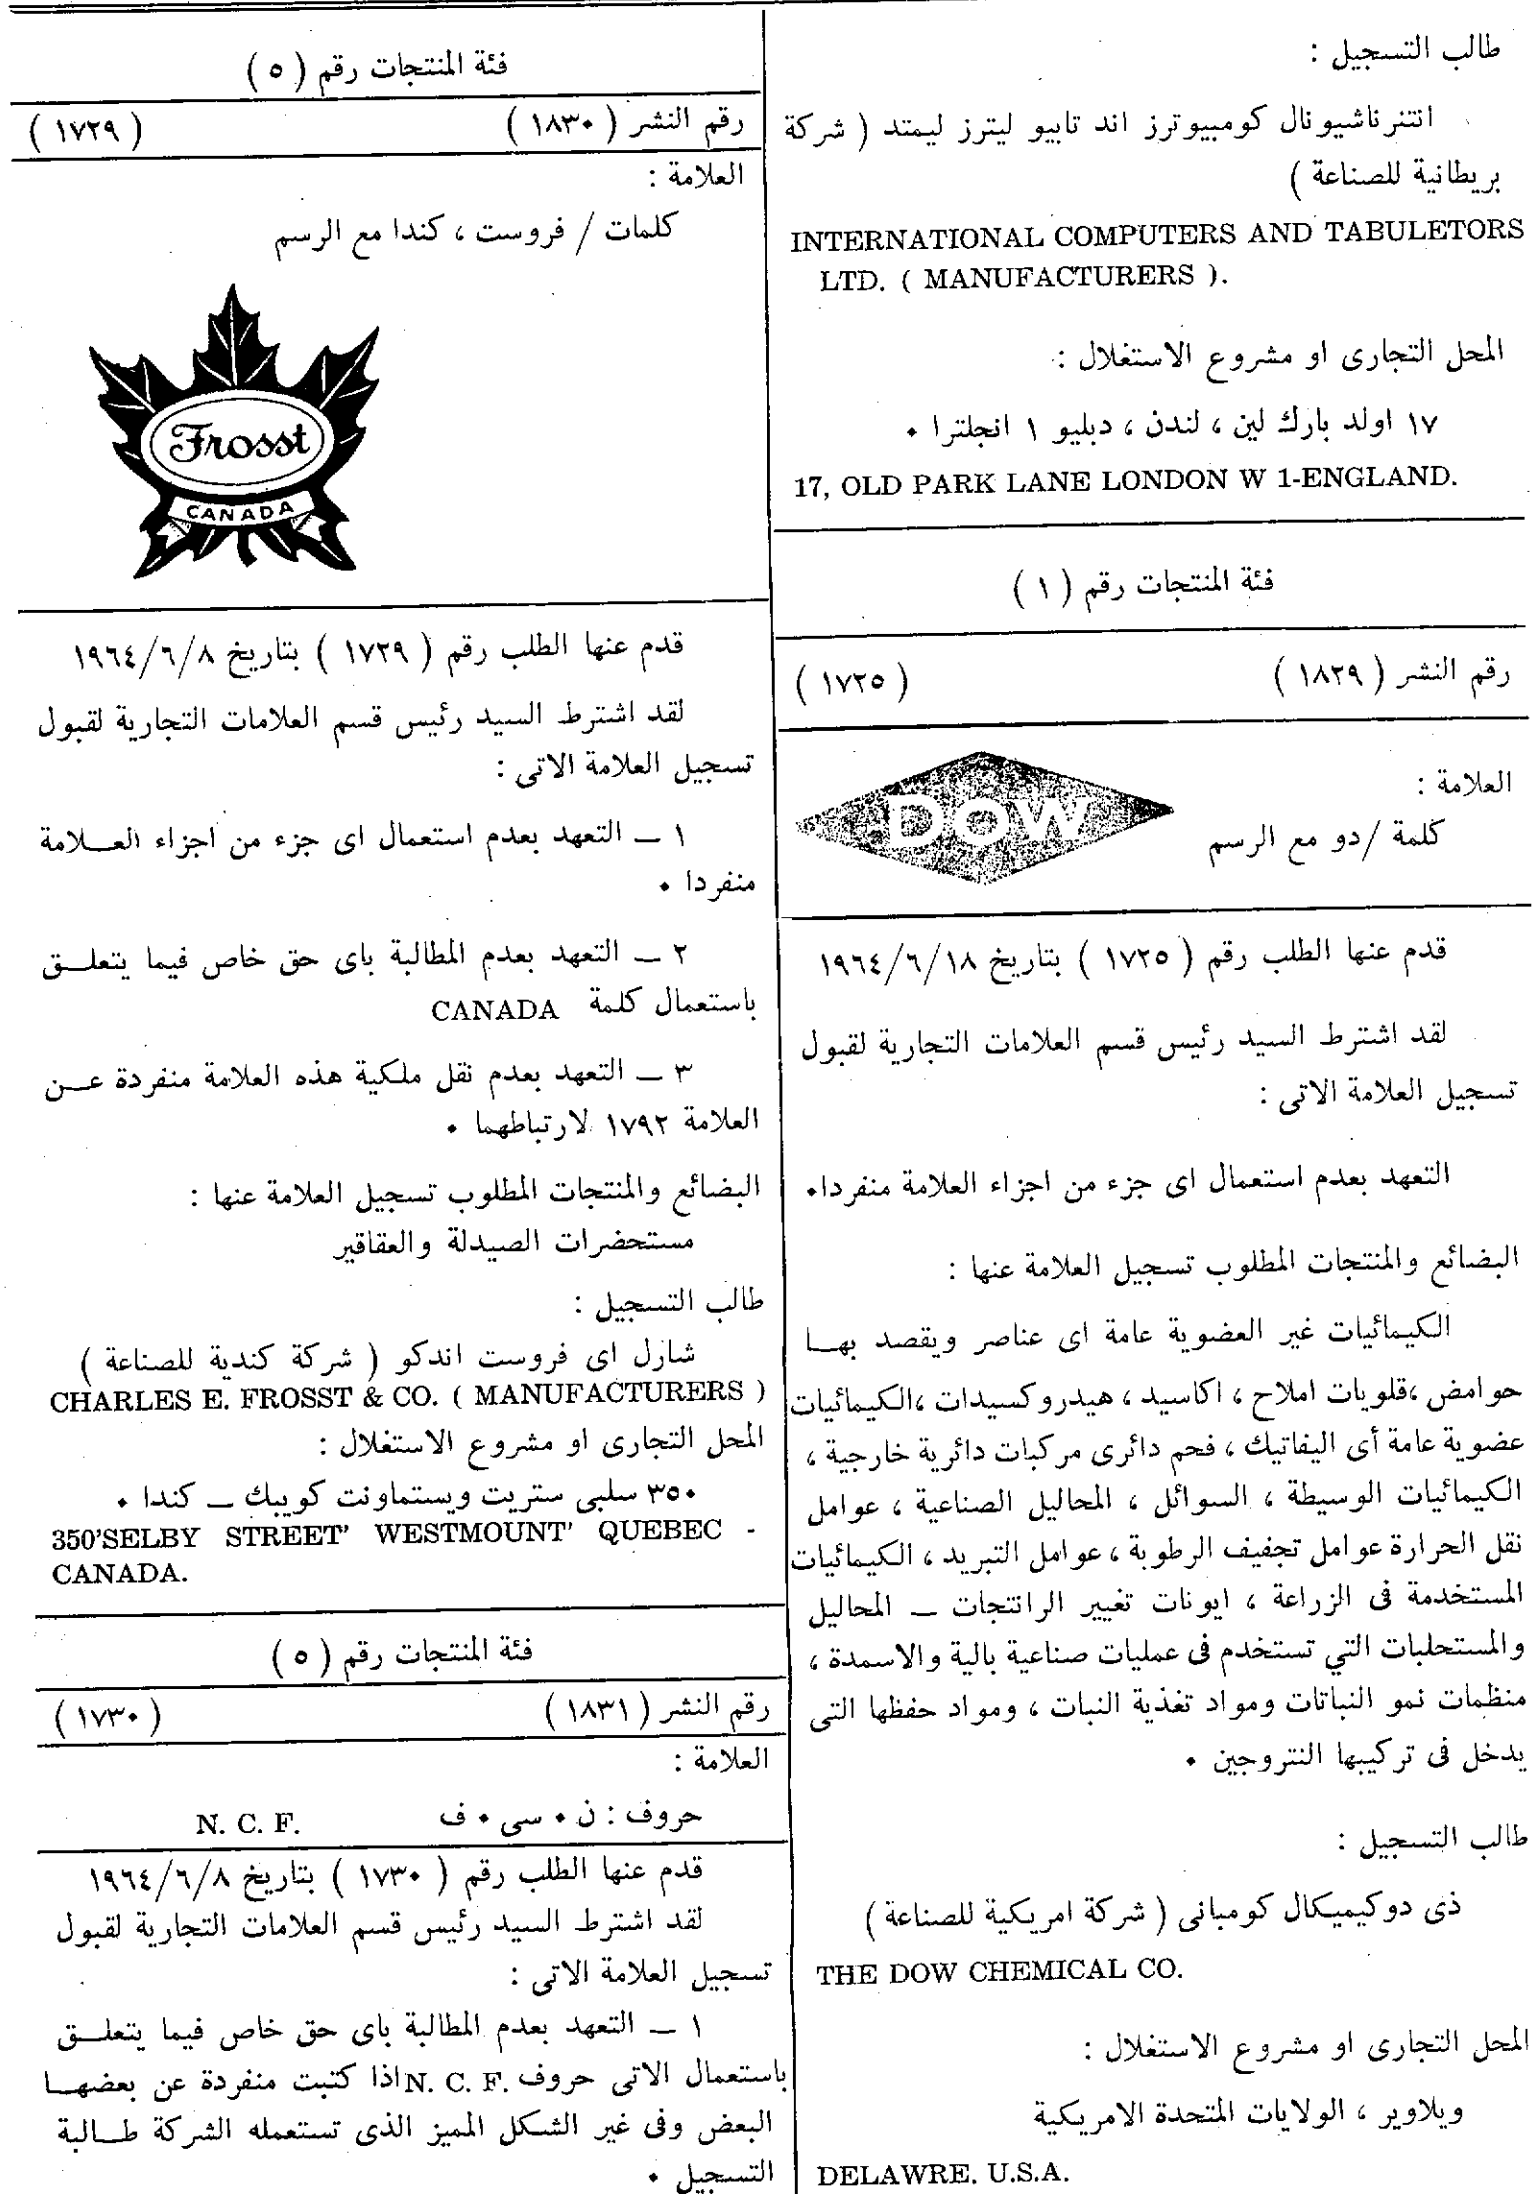 طالب التسجيل :
انتنرناشيونال كومبيوترز اند تابيو ليترز ليمتد ( شركة
بريطانية للصناعة )
INTERNATIONAL COMPUTERS AND TABULETORS
LTD. ( MANUFACTURERS ).
المحل التجارى او مشروع الاستغلال :
١٧ اولد بارك لين ، لندن ، دبليو ١ انجلترا ٠
17, OLD PARK LANE LONDON W 1-ENGLAND.
فئة المنتجات رقم ( ١ )
رقم النشر ( ١٨٢٩ ) ( ١٧٢٥ )
العلامة :
كلمة /دو مع الرسم
DOW
قدم عنها الطلب رقم ( ١٧٢٥ ) بتاريخ ١٩٦٤/٦/١٨
لقد اشترط السيد رئيس قسم العلامات التجارية لقبول
تسجيل العلامة الاتى :
التعهد بعدم استعمال اى جزء من اجزاء العلامة منفردا٠
البضائع والمنتجات المطلوب تسجيل العلامة عنها :
الكيمائيات غير العضوية عامة اى عناصر ويقصد بهــا
حوامض ،قلويات املاح ، اكاسيد ، هيدروكسيدات ،الكيمائيات
عضوية عامة أى اليفاتيك ، فحم دائرى مركبات دائرية خارجية ،
الكيمائيات الوسيطة ، السوائل ، المحاليل الصناعية ، عوامل
نقل الحرارة عوامل تجفيف الرطوبة ، عوامل التبريد ، الكيمائيات
المستخدمة فى الزراعة ، ايونات تغيير الراتنجات ــ المحاليل
والمستحلبات التي تستخدم فى عمليات صناعية بالية والاسمدة ،
منظمات نمو النباتات ومواد تغذية النبات ، ومواد حفظها التى
يدخل فى تركيبها النتروجين ٠
طالب التسجيل :
ذى دوكيميكال كومبانى ( شركة امريكية للصناعة )
THE DOW CHEMICAL CO.
المحل التجارى او مشروع الاستغلال :
ويلاوير ، الولايات المتحدة الامريكية
DELAWRE. U.S.A.
فئة المنتجات رقم ( ٥ )
رقم النشر ( ١٨٣٠ ) ( ١٧٢٩ )
العلامة :
كلمات / فروست ، كندا مع الرسم
Frosst
CANADA
قدم عنها الطلب رقم ( ١٧٢٩ ) بتاريخ ١٩٦٤/٦/٨
لقد اشترط السيد رئيس قسم العلامات التجارية لقبول
تسجيل العلامة الاتى :
١ ــ التعهد بعدم استعمال اى جزء من اجزاء العــلامة
منفردا ٠
٢ ــ التعهد بعدم المطالبة باى حق خاص فيما يتعلــق
باستعمال كلمة CANADA
٣ ــ التعهد بعدم نقل ملكية هذه العلامة منفردة عــن
العلامة ١٧٩٢ لارتباطهما ٠
البضائع والمنتجات المطلوب تسجيل العلامة عنها :
مستحضرات الصيدلة والعقاقير
طالب التسجيل :
شارل اى فروست اندكو ( شركة كندية للصناعة )
CHARLES E. FROSST & CO. ( MANUFACTURERS )
المحل التجارى او مشروع الاستغلال :
٣٥٠ سلبى ستريت ويستماونت كويبك ــ كندا ٠
350'SELBY STREET' WESTMOUNT' QUEBEC -
CANADA.
فئة المنتجات رقم ( ٥ )
رقم النشر ( ١٨٣١ ) ( ١٧٣٠ )
العلامة :
حروف : ن ٠ سى ٠ ف N. C. F.
قدم عنها الطلب رقم ( ١٧٣٠ ) بتاريخ ١٩٦٤/٦/٨
لقد اشترط السيد رئيس قسم العلامات التجارية لقبول
تسجيل العلامة الاتى :
١ ــ التعهد بعدم المطالبة باى حق خاص فيما يتعلــق
باستعمال الاتى حروف N. C. F. اذا كتبت منفردة عن بعضهــا
البعض وفى غير الشكل المميز الذى تستعمله الشركة طــالبة
التسجيل ٠